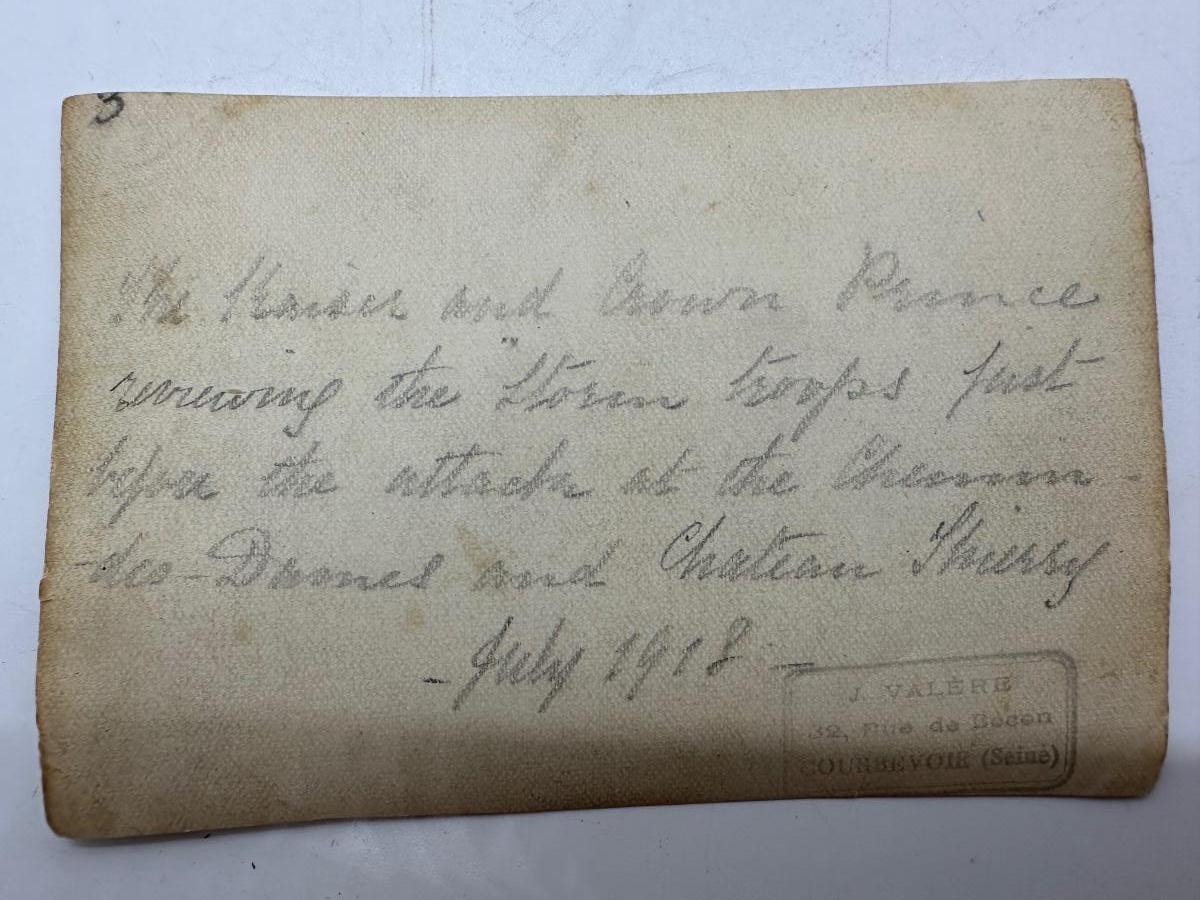 3
The Kaiser and Crown Prince
reviewing the "Storm troops just
before the attack at the Chemin -
-des-Dames and Chateau Thierry
- July 1918 -
J. VALÈRE
32, Rue de Becon
COURBEVOIE (Seine)